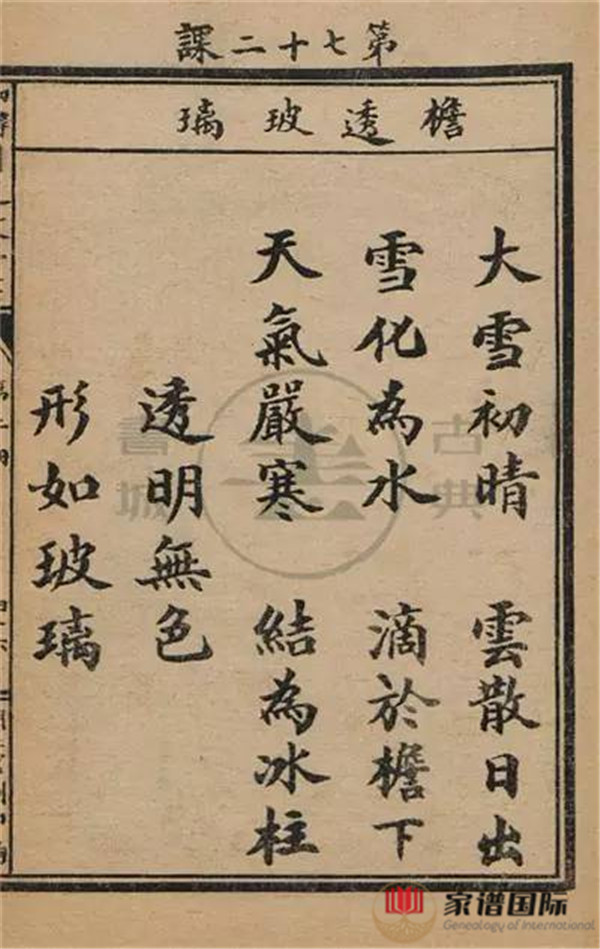 第七十二課
檐透玻璃
大雪初晴 雲散日出
雪化為水 滴於檐下
天氣嚴寒 結為冰柱
透明無色
形如玻璃
古典書城
家谱国际
Genealogy of International